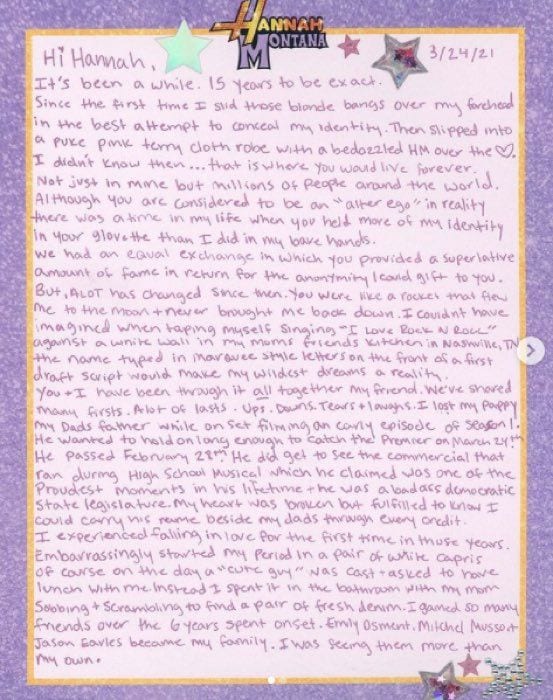 HANNAH
MONTANA
Hi Hannah,
3/24/21
It's been a while. 15 years to be exact.
Since the first time I slid those blonde bangs over my forehead
in the best attempt to conceal my identity. Then slipped into
a puke pink terry cloth robe with a bedazzled HM over the ♡.
I didn't know then... that is where you would live forever.
Not just in mine but millions of people around the world.
Although you are considered to be an "alter ego" in reality
there was a time in my life when you held more of my identity
in your glovette than I did in my bare hands.
We had an equal exchange in which you provided a superlative
amount of fame in return for the anonymity I could gift to you.
But, ALOT has changed since then. You were like a rocket that flew
me to the moon + never brought me back down. I couldnt have
imagined when taping myself singing "I Love Rock N Roll"
against a white wall in my moms friends kitchen in Nashville, TN
the name typed in marquee style letters on the front of a first
draft script would make my wildest dreams a reality.
You + I have been through it all together my friend. We've shared
many firsts. Alot of lasts. Ups. Downs. Tears + laughs. I lost my Pappy
my Dads father while on set filming an early episode of season 1.
He wanted to hold on long enough to catch the Premier on March 24th
He passed February 28th He did get to see the commercial that
ran during High School Musical which he claimed was one of the
Proudest moments in his lifetime + he was a badass democratic
State legislature. My heart was broken but fulfilled to know I
could carry his name beside my dads through every credit.
I experienced falling in love for the first time in those years.
Embarrassingly started my period in a pair of white capris
of course on the day a "cute guy" was cast + asked to have
lunch with me. Instead I spent it in the bathroom with my mom
Sobbing + Scrambling to find a pair of fresh denim. I gained so many
friends over the 6 years spent on set. Emily Osment. Mitchel Musso +
Jason Earles became my family. I was seeing them more than
my own.